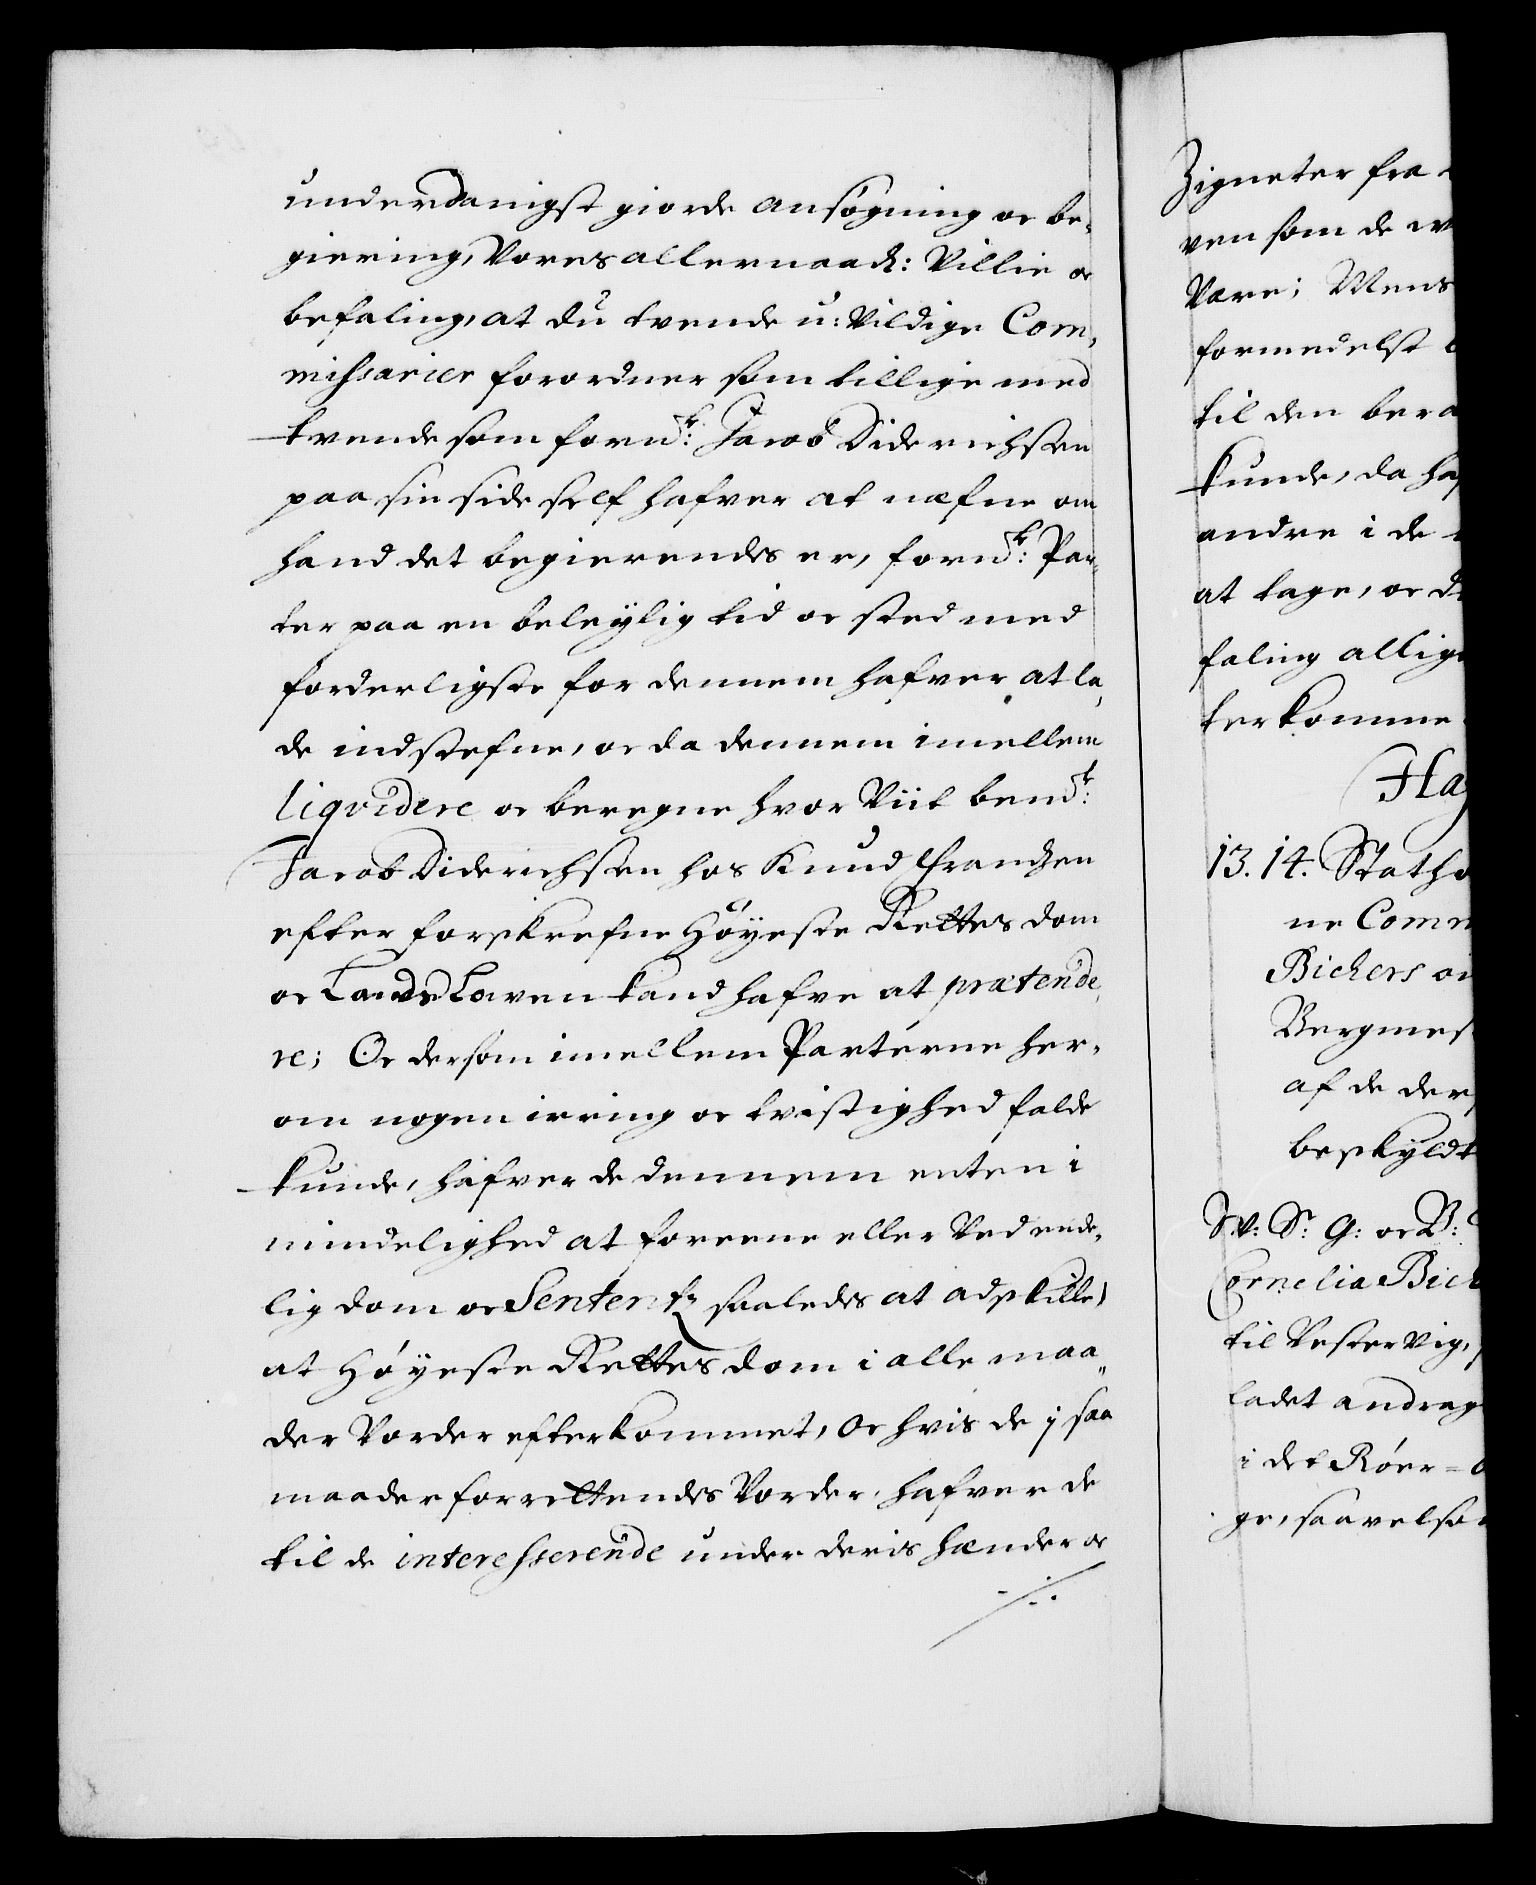 underdanigst giorde ansøgning oc be,
giering, Vores allernaad: Villie oc
befaling, at du tvende u: Vildige Com,
missarier forordner som tillige med
tvende som forn.te: Jacob Diderichsen
paa sin side self hafver at næfne om
hand det begierendes er, forn.te: Par,
ter paa en beleylig tid oc sted med
forderligste for dennem hafver at la,
de indstefne, oc da dennem imellem
liqvidere oc beregne hvor Viit bem.te:
Jacob Diderichsen hos Knud Frandzen
efter forskrefne Høyeste Rettes dom
oc Lands Lowen kand hafve at prætende,
re; Oc dersom imellem Parterne her,
om nogen irring oc tvistighed falde
kunde, hafver de dennem enten i
mindelighed at foreene eller Ved ende,
lig dom oc Sententz saaledes at adskille,
at Høyeste Rettes dom i alle maa,,
der Vorder efterkommet, Oc hvis de j saa
maader forrettendes Vorder, hafver de
til de interesserende under deris hænder oc
./.
Zigneter fra
ven som de
Være; Mens
formedelst
til den
kunde, da
andre i de
at tage, oc
faling
terkomme
13. 14.
ne
Bichers
af de
beskyldt
S.V: S.r G: oc B:
Cornelia
til Vester Vig,
ladet andrag
i det Röer =
ge, saavelso